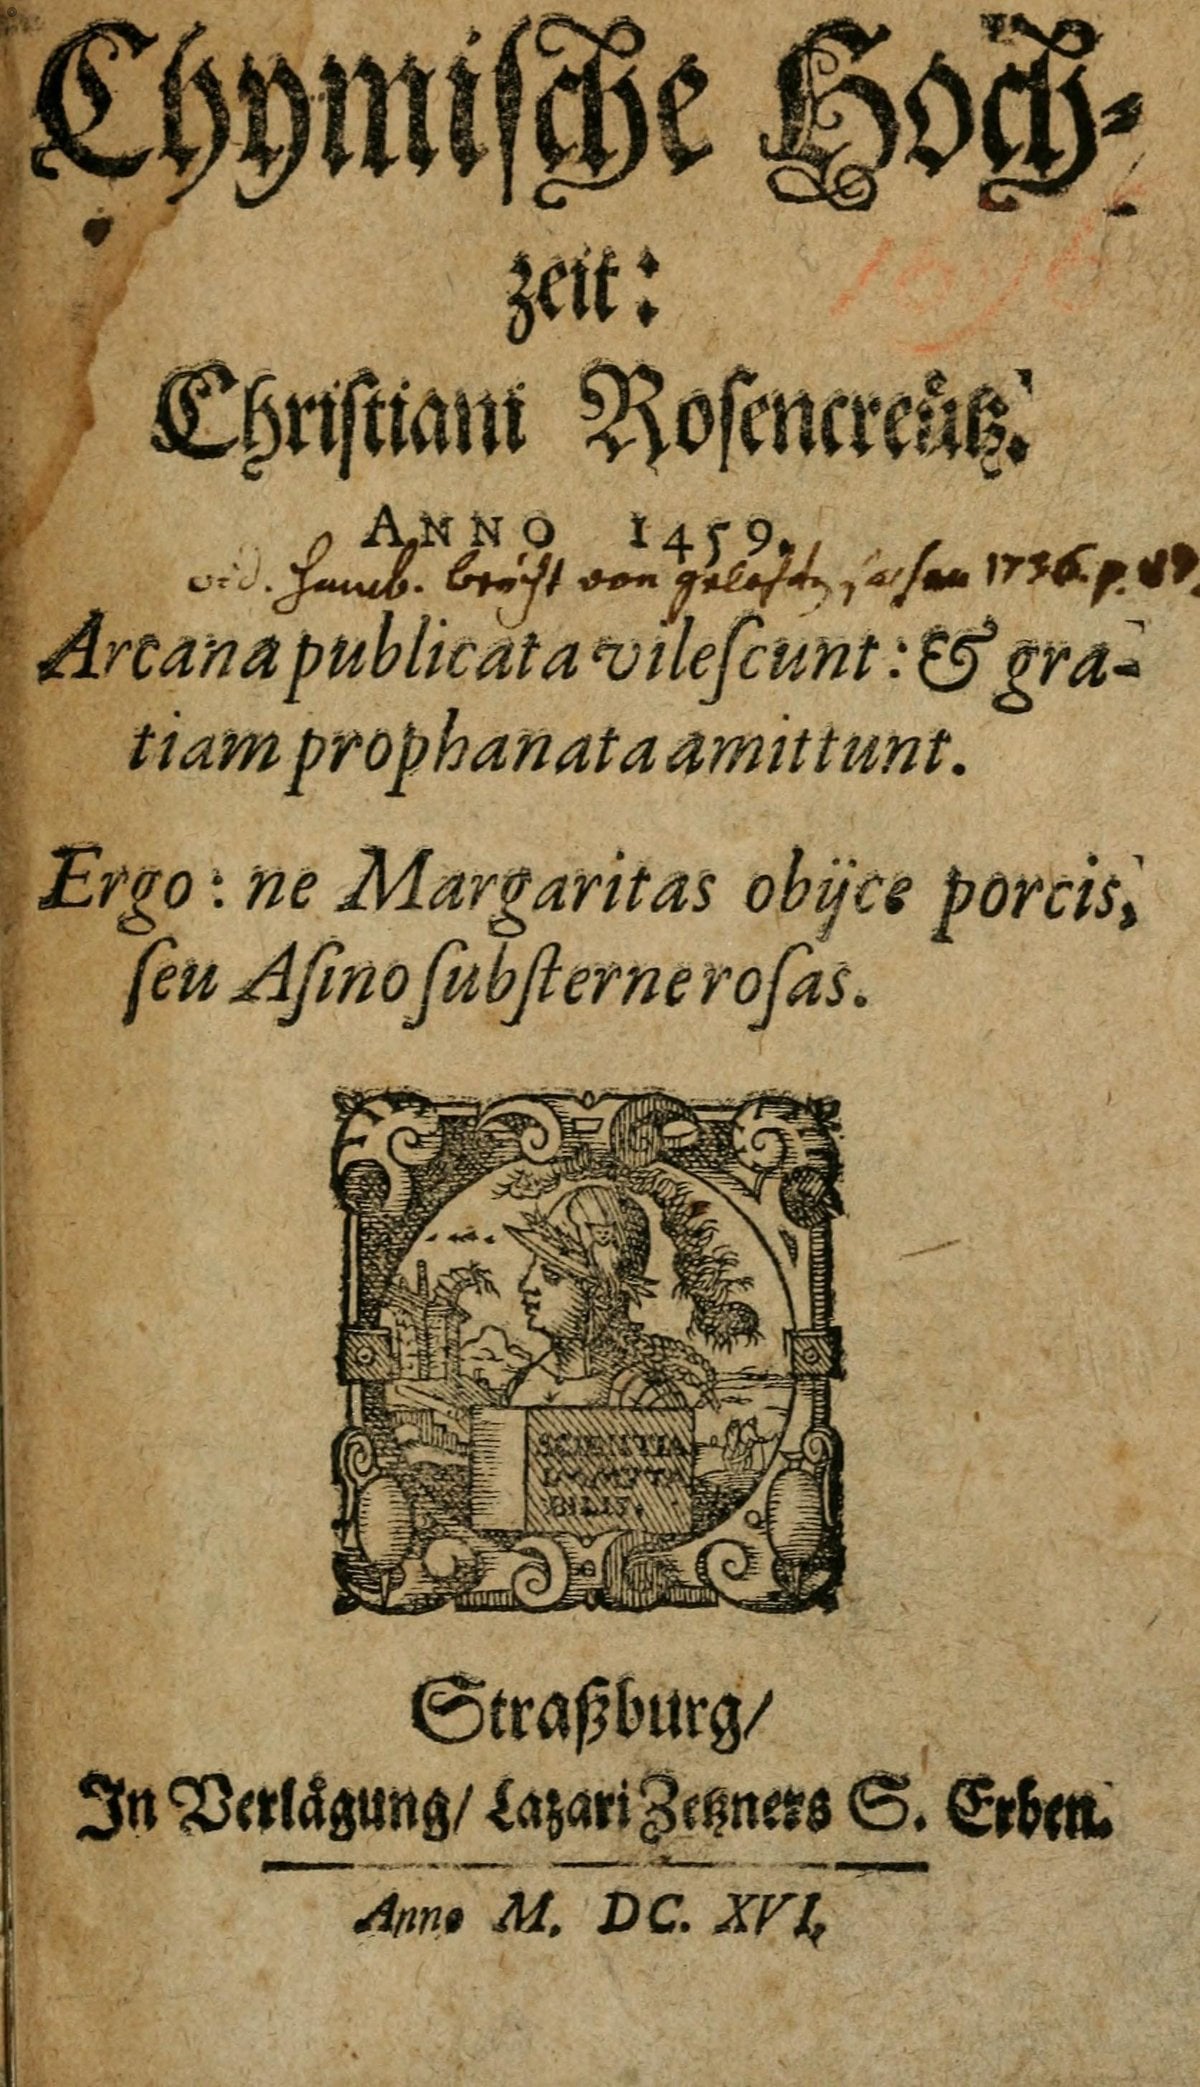 Chymische Hoch-
zeit:
Christiani Rosencreütz.
ANNO 1459.
vid. Hamb. bericht von gelehrten sachen 1736. p.
Arcana publicata vileſcunt: & gra-
tiam prophanata amittunt.
Ergo: ne Margaritas obijce porcis,
ſeu Aſino ſubſterne roſas.
SCIENTIA
IMMUTA
BILIS.
Straßburg/
In Verlägung/ Lazari Zetzners S. Erben.
Anno M. DC. XVI.